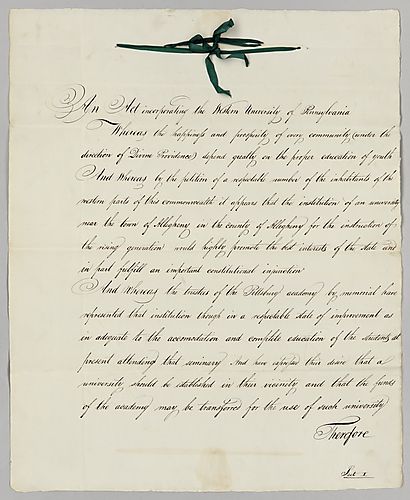 An Act incorporating the Western University of Pennsylvania
Whereas the happiness and prosperity of every community (under the
direction of Divine Providence) depend greatly on the proper education of youth
And Whereas by the petition of a respectable number of the inhabitants of the
western parts of this commonwealth it appears that the institution of an university
near the town of Allegheny in the county of Allegheny for the instruction of
the rising generation would highly promote the best interests of the state and
in part fulfill an important constitutional injunction
And Whereas the trustees of the Pittsburg academy by memorial have
represented that institution though in a respectable state of improvement as
in adequate to the accomodation and complete education of the students at
present attending that seminary And have expressed their desire that a
university should be established in their vicinity and that the funds
of the academy may be transferred for the use of such university
Therefore
Sect 1